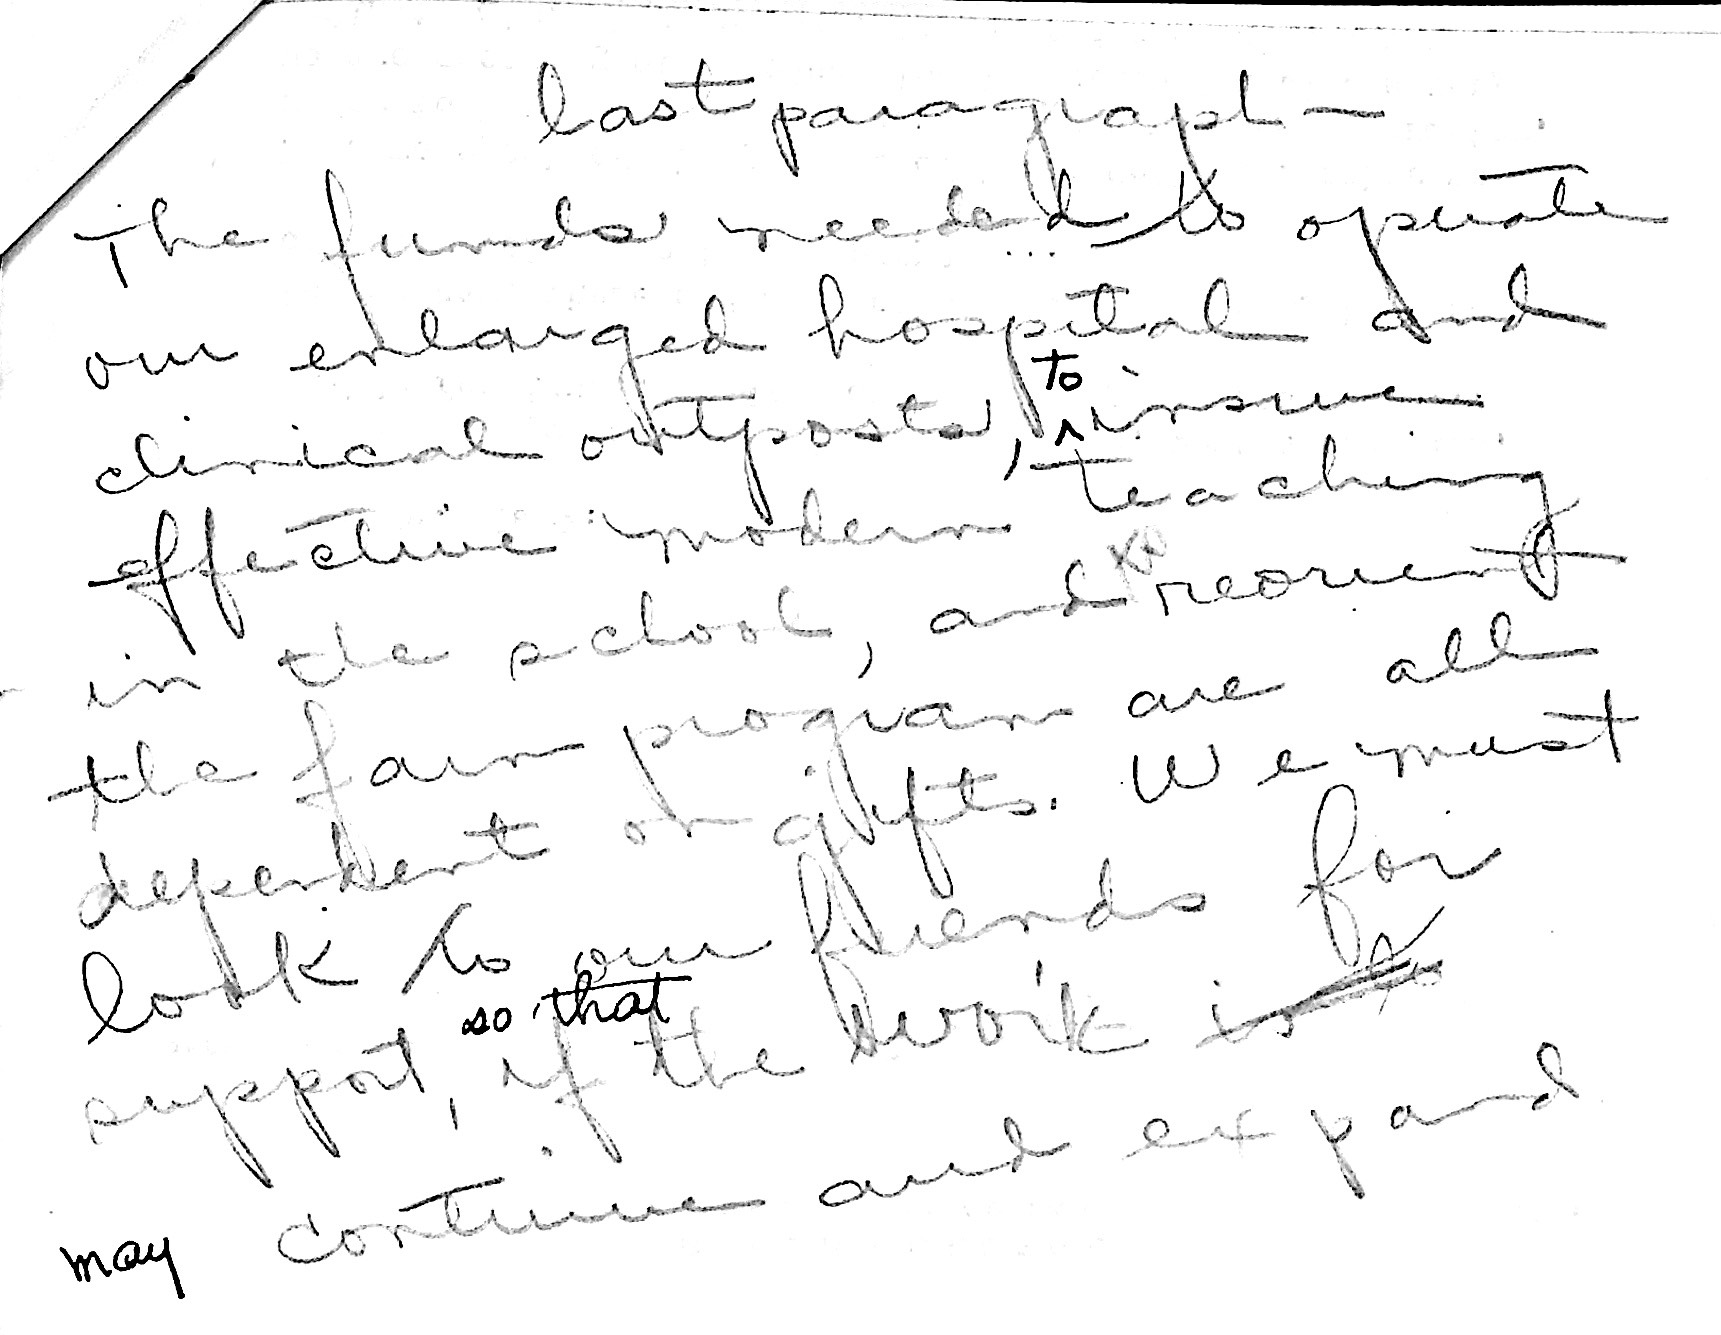 last paragraph —
The funds needed to operate
our enlarged hospital and
clinical outposts, to insure
effective modern teaching
in the school, and to reorient
the farm program are all
dependent on gifts. We must
look to our friends for
support, so that if the work is to
may continue and expand